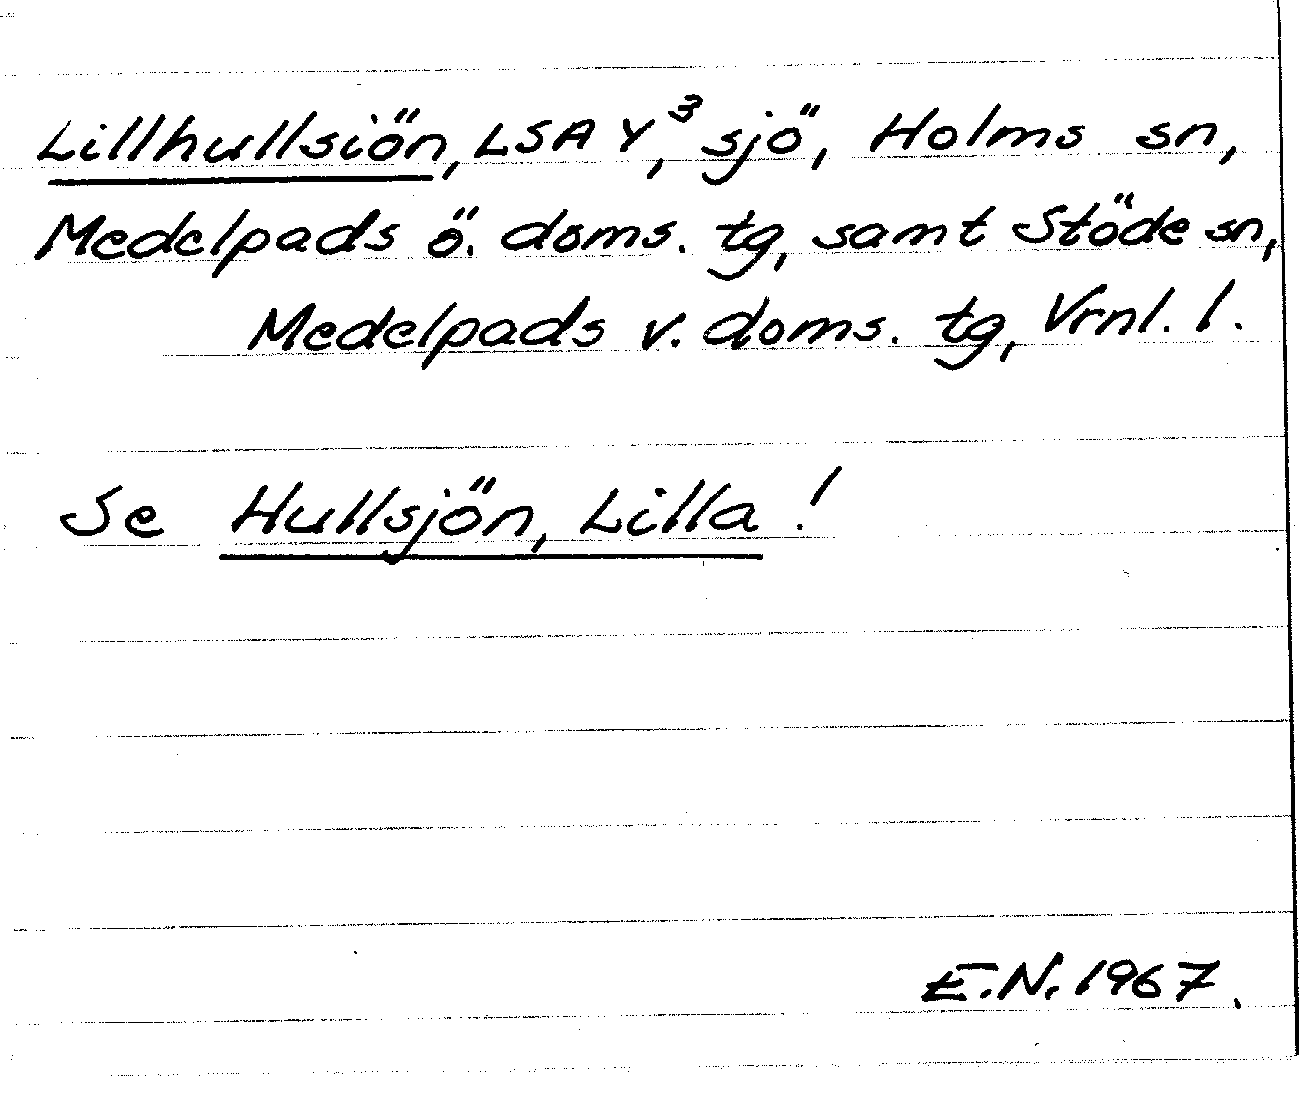 Lillhullsiön, LSA Y³, sjö, Holms sn,
Medelpads ö. doms. tg, samt Stöde sn,
Medelpads v. doms. tg, Vrnl. l.
Se Hullsjön, Lilla !
E.N. 1967.